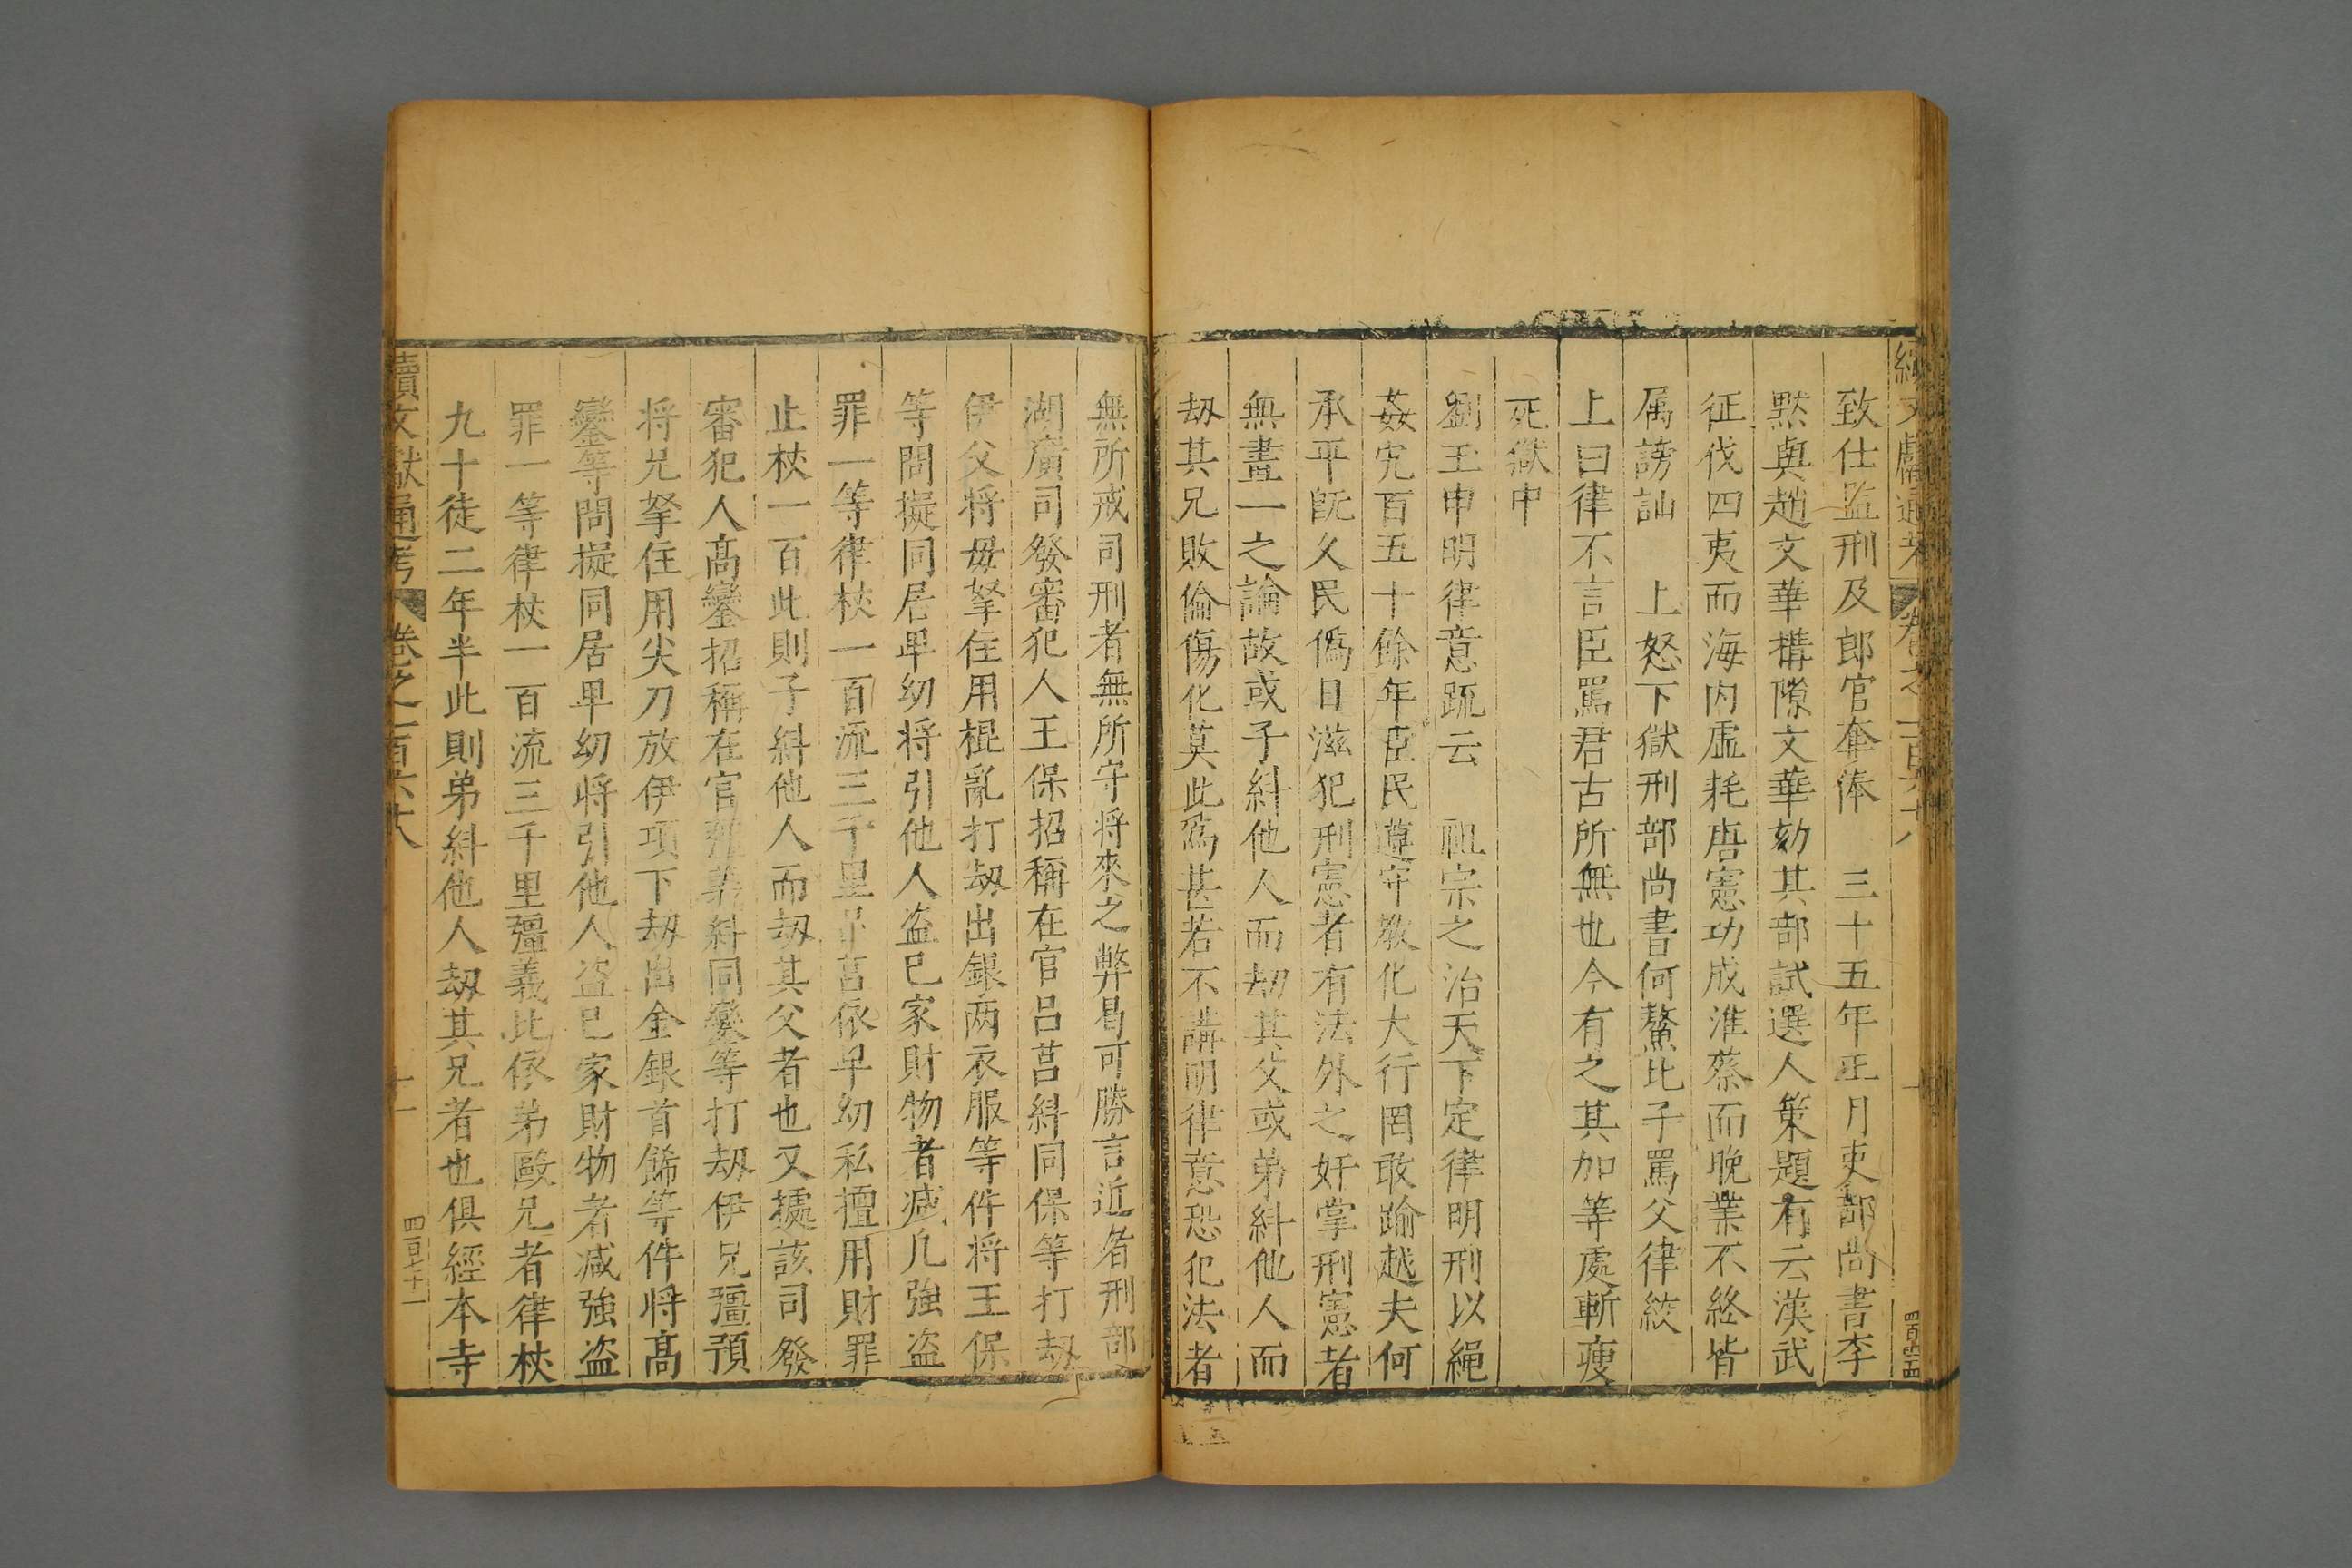 致仕監刑及郎官奪俸　三十五年正月吏部尚書李
默與趙文華構隙文華劾其部試選人策題有云漢武
征伐四夷而海内虛耗唐憲功成淮蔡而晚業不終皆
属謗訕　上怒下獄刑部尚書何鰲比子罵父律絞
上曰律不言臣罵君古所無也今有之其加等處斬瘐
死獄中
劉玉申明律意疏云　祖宗之治天下定律明刑以繩
姦宄百五十餘年臣民遵守教化大行罔敢踰越夫何
承平旣久民僞日滋犯刑憲者有法外之奸掌刑憲者
無畫一之論故或子糾他人而刼其父或弟糾他人而
刼其兄敗倫傷化莫此爲甚若不講明律意恐犯法者
無所戒司刑者無所守将來之弊曷可勝言近者刑部
湖廣司發審犯人王保招稱在官呂莒糾同保等打刼
伊父将毋拏住用棍亂打刼出銀两衣服等件将王保
等問擬同居卑幼将引他人盗巳家財物者减凡強盗
罪一等律杖一百流三千里呂莒依卑幼私擅用財罪
止杖一百此則子糾他人而刼其父者也又據該司發
審犯人髙鑾招稱在官彊義糾同鑾等打刼伊兄彊預
将兄拏住用尖刀放伊項下刼出金銀首餙等件将髙
鑾等問擬同居卑幼将引他人盗巳家財物者减強盗
罪一等律杖一百流三千里彊義比依弟毆兄者律杖
九十徒二年半此則弟糾他人刼其兄者也俱經本寺
續文獻通考　卷之一百六十八　十一
四百七十一